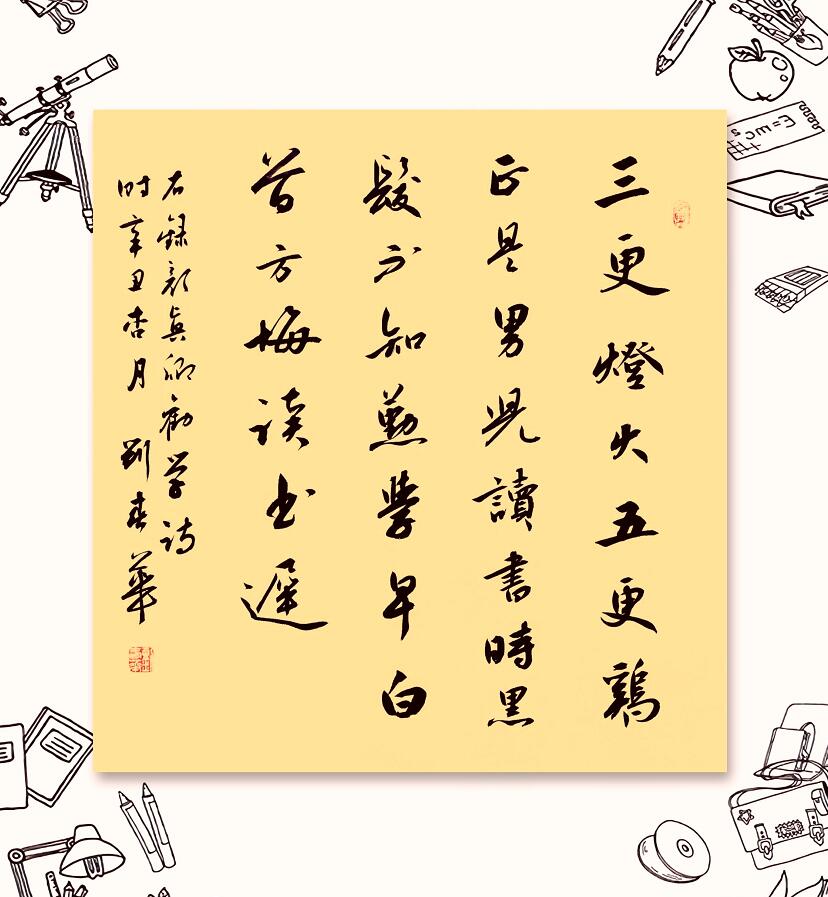 三更燈火五更鷄
正是男兒讀書時黑
髮不知勤學早白
首方悔读书遲
右録顏真卿勸学诗
时辛丑杏月劉春華
E=mc²